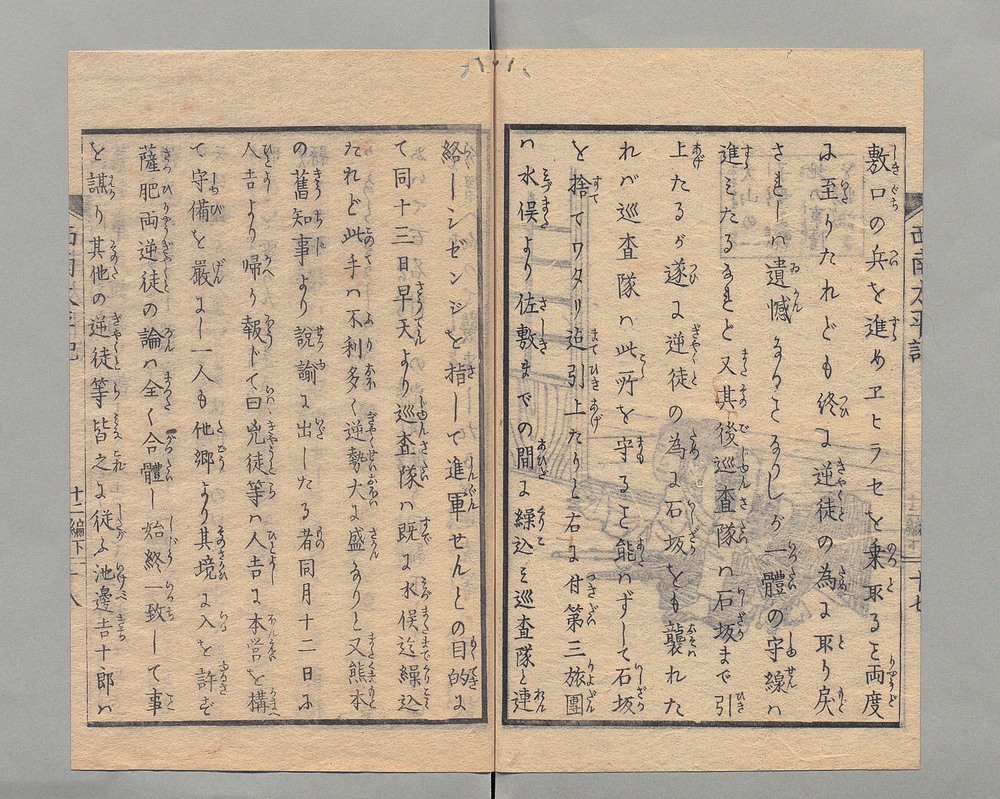 敷口の兵を進めヱヒラセを乗取ると両度
に至りたれども終に逆徒の為に取り戻
されしハ遺憾なることなりしが一體の守線ハ
進みたるなれど又其後巡査隊ハ石坂まで引
上たるが遂に逆徒の為に石坂をも襲れた
れバ巡査隊ハ此所を守ると能ハずして石坂
を捨てワタリ迠引上たりと右に付第三旅團
ハ水俣より佐敷までの間に繰込み巡査隊と連
絡しシゼンジを指して進軍せんとの目的に
て同十三日早天より巡査隊ハ既に水俣迠繰込
たれど此手ハ不利多く逆勢大に盛なりと又熊本
の舊知事より説諭に出したる者同月十二日に
人吉より帰り報じて曰兇徒等ハ人吉に本営を構
て守備を嚴にし一人も他郷より其境に入を許さず
薩肥両逆徒の論ハ全く合體し始終一致して事
を謀り其他の逆徒等皆之に従ふ池邊吉十郎ハ
西南太平記
十二編下
十七
西南太平記
十二編下
十八